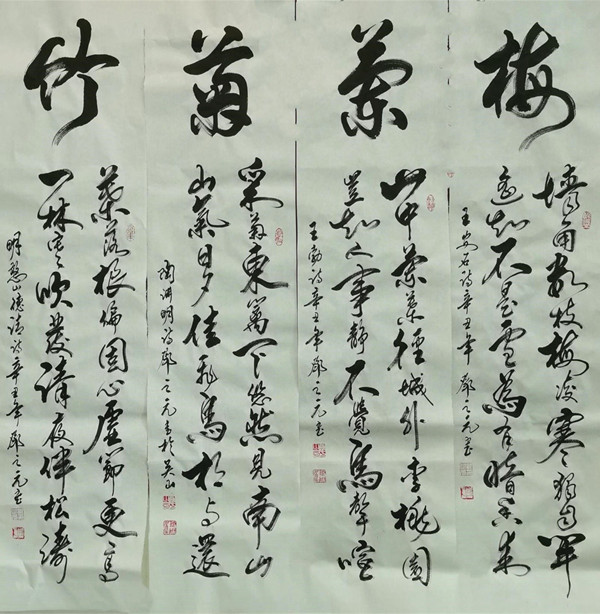 梅
墙角数枝梅凌寒独自开
遥知不是雪为有暗香来
王安石诗辛丑年郑之元书
兰
山中兰叶径城外李桃园
岂知人事静不觉鸟声喧
王勃诗辛丑年郑之元书
菊
采菊东篱下悠然见南山
山气日夕佳飞鸟相与还
陶渊明诗郑之元书於吴山
竹
叶落根偏固心虚节更高
一林寒吹发清夜伴松涛
明憨山德清诗辛丑年郑之元书